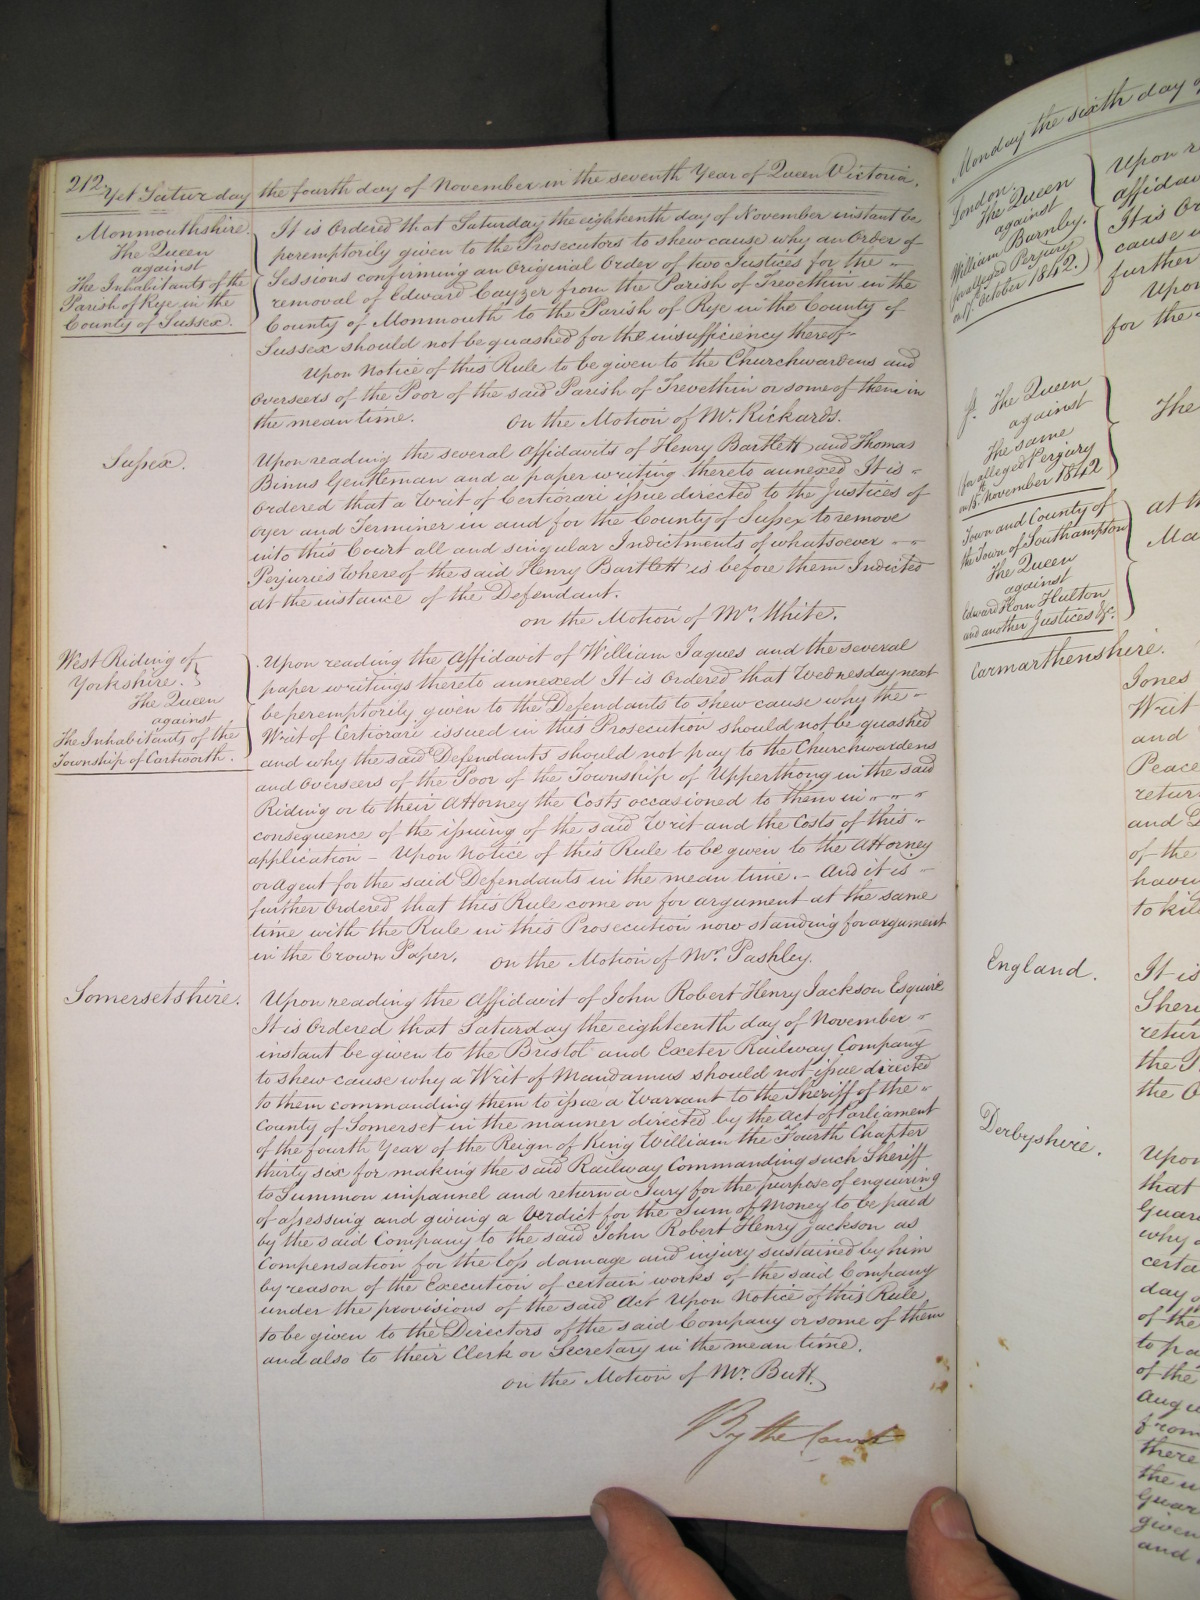 212. Yet Saturday the fourth day of November in the seventh Year of Queen Victoria.
Monmouthshire.
The Queen
against
The Inhabitants of the
Parish of Rye in the
County of Sussex.
It is Ordered that Saturday the eighteenth day of November instant be
peremptorily given to the Prosecutors to shew cause why an Order of
Sessions confirming an Original Order of two Justices for the
removal of Edward Cayzer from the Parish of Trevethin in the
County of Monmouth to the Parish of Rye in the County of
Sussex should not be quashed for the insufficiency thereof
Upon Notice of this Rule to be given to the Churchwardens and
Overseers of the Poor of the said Parish of Trevethin or some of them in
the mean time. On the Motion of Mr. Rickards.
Sussex.
Upon reading the several Affidavits of Henry Bartlett and Thomas
Binns Gentleman and a paper writing thereto annexed It is
Ordered that a Writ of Certiorari issue directed to the Justices of
Oyer and Terminer in and for the County of Sussex to remove
into this Court all and singular Indictments of whatsoever
Perjuries whereof the said Henry Bartlett is before them Indicted
at the instance of the Defendant.
on the Motion of Mr. White.
West Riding of
Yorkshire.
The Queen
against
The Inhabitants of the
Township of Cartworth.
Upon reading the Affidavit of William Jaques and the several
paper writings thereto annexed It is Ordered that Wednesday next
be peremptorily given to the Defendants to shew cause why the
Writ of Certiorari issued in this Prosecution should not be quashed
and why the said Defendants should not pay to the Churchwardens
and Overseers of the Poor of the Township of Upperthong in the said
Riding or to their Attorney the Costs occasioned to them in
consequence of the issuing of the said Writ and the Costs of this
application – Upon Notice of this Rule to be given to the Attorney
or Agent for the said Defendants in the mean time. – And it is
further Ordered that this Rule come on for argument at the same
time with the Rule in this Prosecution now standing for argument
in the Crown Paper. On the Motion of Mr. Pashley.
Somersetshire.
Upon reading the Affidavit of John Robert Henry Jackson Esquire
It is Ordered that Saturday the eighteenth day of November
instant be given to the Bristol and Exeter Railway Company
to shew cause why a Writ of Mandamus should not issue directed
to them commanding them to issue a Warrant to the Sheriff of the
County of Somerset in the manner directed by the Act of Parliament
of the fourth Year of the Reign of King William the Fourth Chapter
thirty six for making the said Railway Commanding such Sheriff
to Summon impannel and return a Jury for the purpose of enquiring
of assessing and giving a Verdict for the Sum of Money to be paid
by the said Company to the said John Robert Henry Jackson as
Compensation for the loss damage and injury sustained by him
by reason of the Execution of certain works of the said Company
under the provisions of the said Act Upon Notice of this Rule
to be given to the Directors of the said Company or some of them
and also to their Clerk or Secretary in the mean time.
on the Motion of Mr. Butt.
By the Court
Monday the sixth day
London.
The Queen
against
William Barnley.
for alleged Perjury
October 1842.)
Upon
affidav
It is Or
cause
further
Upon
for the
The Queen
against
The same
for alleged Perjury
on 15th November 1842
The
Town and County of
the Town of Southampton
The Queen
against
Edward Horn Hulton
and another Justices &c.
at th
Ma
Carmarthenshire.
Jones
Writ
and
Peace
return
and
of the
having
to kil
England.
It is
Sheri
retur
the
the
Derbyshire.
Upon
that
Guar
why
certa
day
of the
to pa
of the
Augu
from
there
the
Guar
given
and